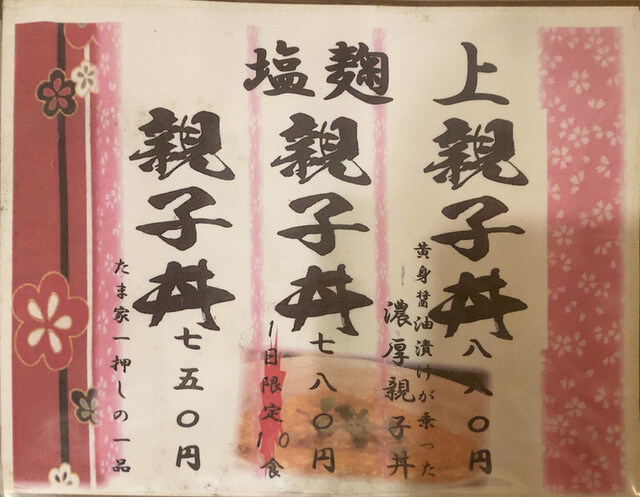 上親子丼 八八〇円
黄身醤油漬けが乗った
濃厚親子丼
塩麹
親子丼 七八〇円
1日限定10食
親子丼 七五〇円
たま家一押しの一品